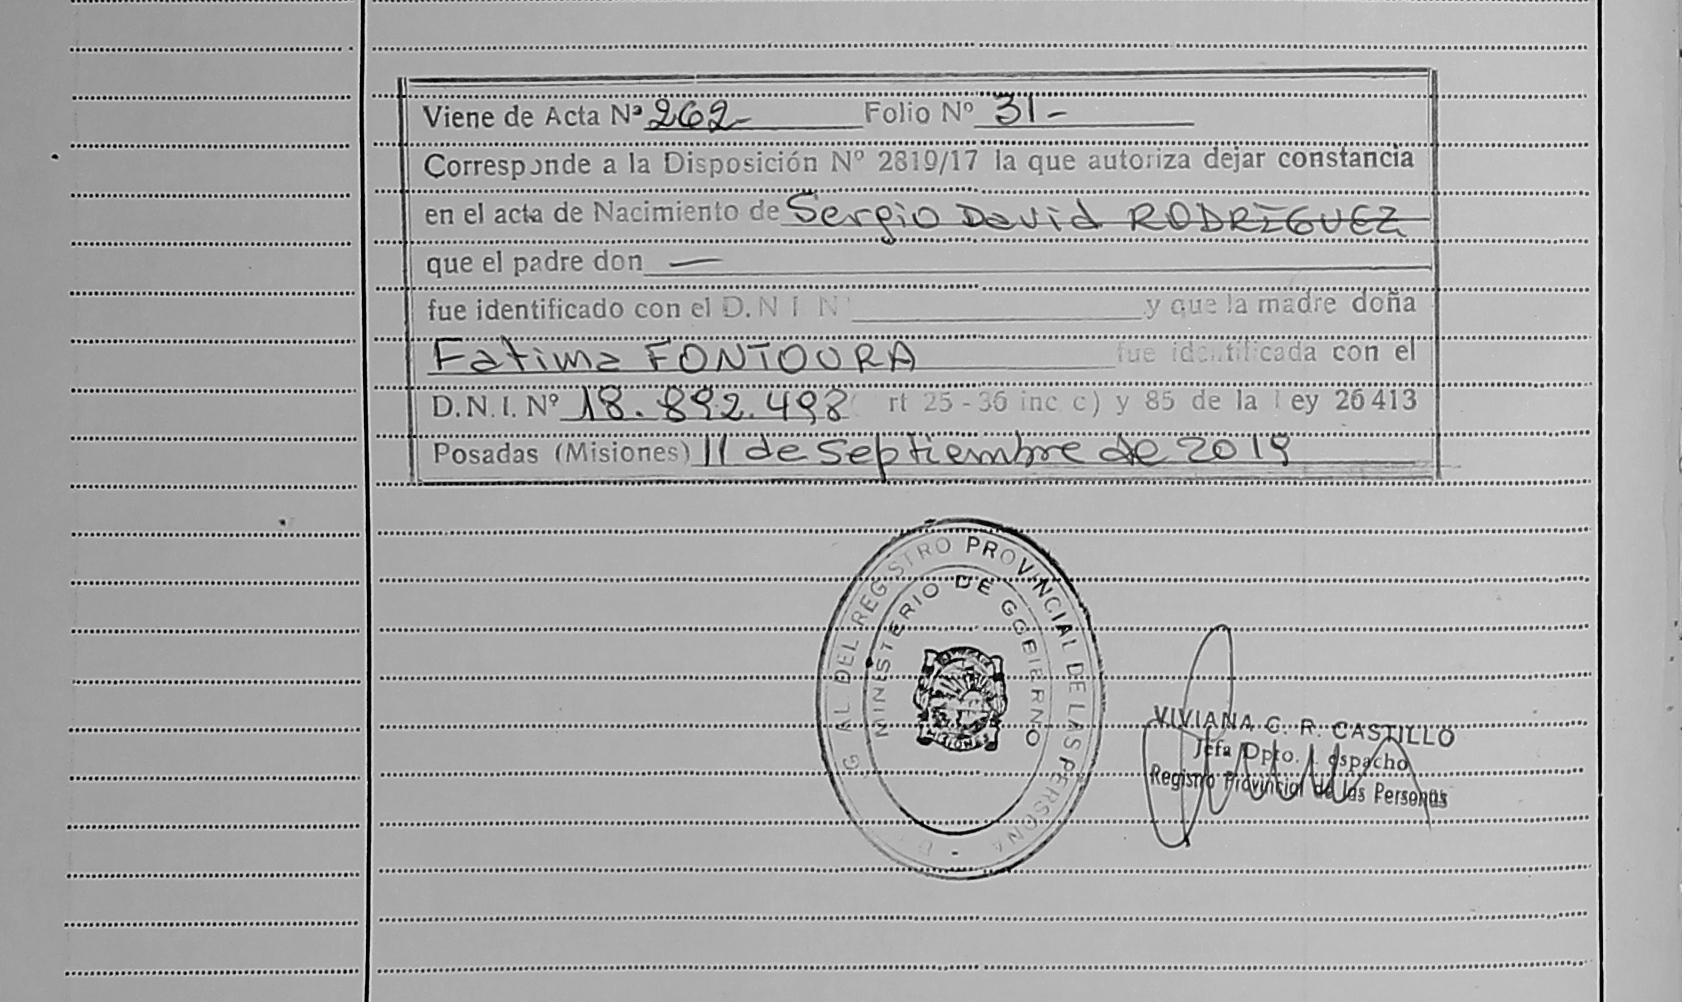 Viene de Acta Nº 262- Folio Nº 31-
Corresponde a la Disposición Nº 2819/17 la que autoriza dejar constancia
en el acta de Nacimiento de Sergio David RODRIGUEZ
que el padre don —
fue identificado con el D.N I N y que la madre doña
Fatima FONTOURA fue identificada con el
D.N.I. Nº 18.892.498 rt 25-36 inc c) y 85 de la ley 26413
Posadas (Misiones) 11 de Septiembre de 2019
G AL DEL REGISTRO PROVINCIAL DE LAS PERSONA
MINISTERIO DE GOBIERNO
MISIONES
VIVIANA C. R. CASTILLO
Jefa Dpto. espacho
Registro Provincial de las Personas